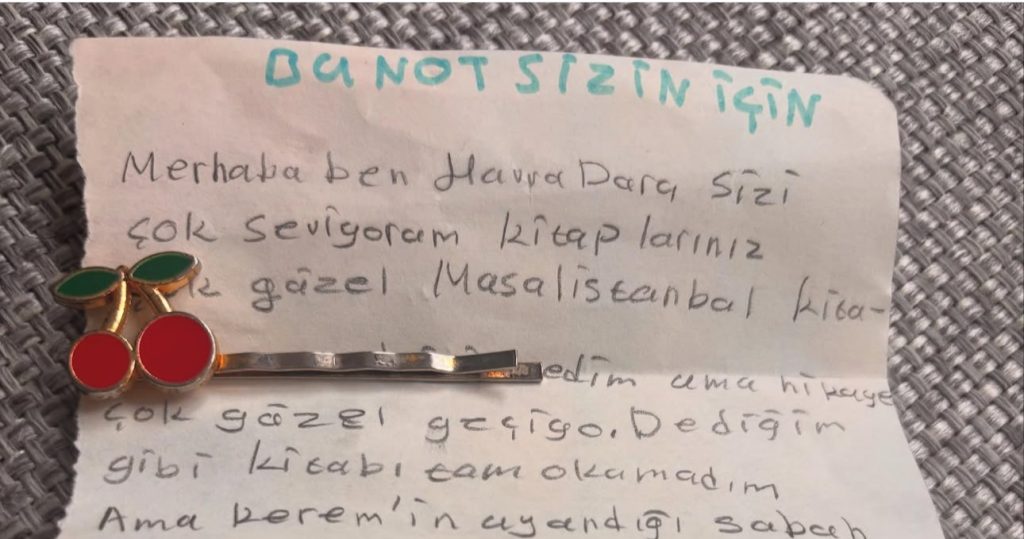 BU NOT SİZİN İÇİN
Merhaba ben Havva Dara sizi
çok seviyoram kitaplarınız
güzel Masalistanbul kita-
edim ama hikaye
çok güzel geçiyo. Dediğim
gibi kitabı tam okumadım
Ama kerem'in uyandığı sabah